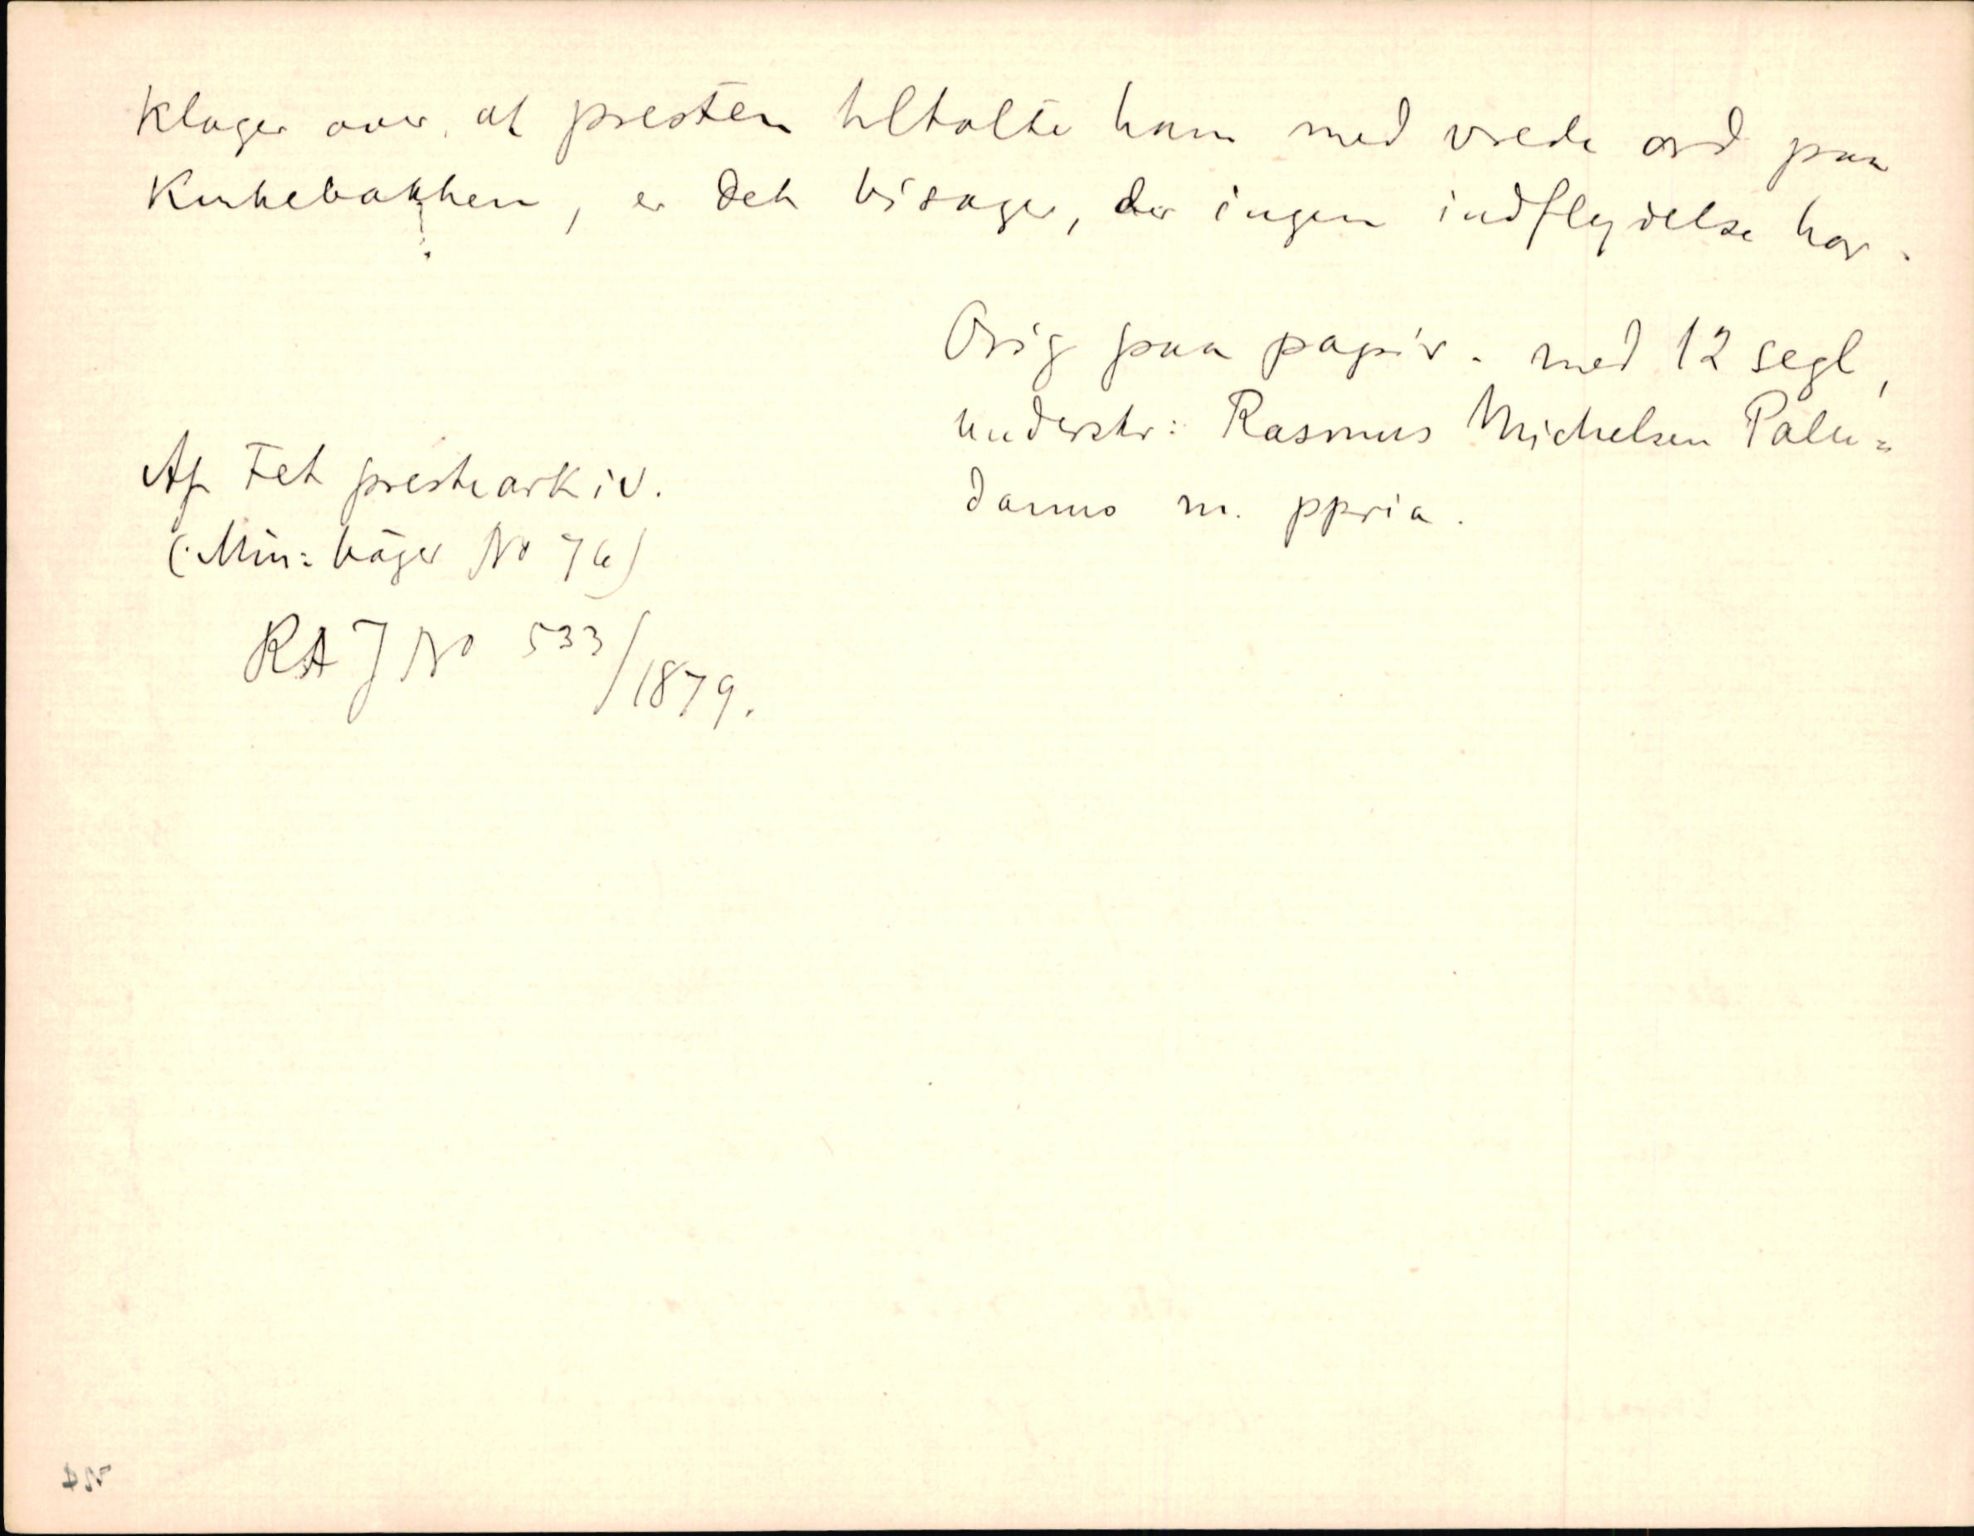 klager over, at presten tiltalte ham med vrede ord paa
Kirkebakken, er det bisager, der ingen indflydelse har.
Orig paa papir. med 12 segl,
underskr: Rasmus Michelsen Palu=
danno m. ppria.
Af Fet prestearkiv.
(Min: bøger No 76)
RA J No 533/1879.